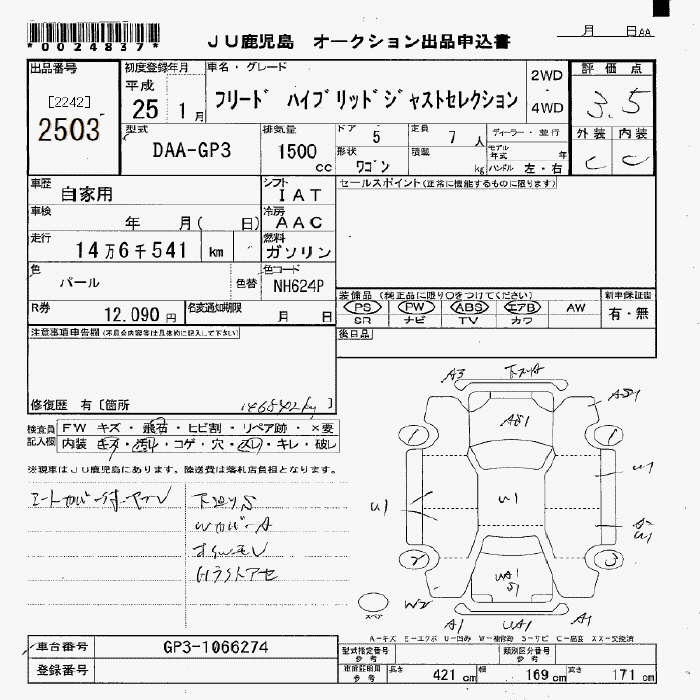 *0024837*
JU鹿児島 オークション出品申込書
月 日AA
出品番号
[2242]
2503
初度登録年月
平成
25 1月
車名・グレード
フリード ハイブリッドジャストセレクション
2WD
・
4WD
評価点
3.5
外装 内装
C C
型式
DAA-GP3
排気量
1500
cc
ドア 5
定員 7 人
ディーラー・並行
形状 ワゴン
積載 kg
モデル年式 年
ハンドル 左・右
車歴 自家用
シフト IAT
セールスポイント(正常に機能するものに限ります)
車検 年 月( 日)
冷房 AAC
走行 14万6千541 km
燃料 ガソリン
色 パール
色替
色コード NH624P
R券 12,090 円
名変通知期限 月 日
装備品(純正品に限り○をつけてください)
PS PW ABS エアB AW
SR ナビ TV カワ
新車保証書
有・無
後日品
注意事項申告欄(不具合内容等は具体的に記入して下さい)
修復歴 有[箇所 ]
146542km
検査員記入欄
FW キズ・飛石・ヒビ割・リペア跡・×要
内装 キズ・汚れ・コゲ・穴・スレ・キレ・破レ
※現車はJU鹿児島にあります。陸送費は落札店負担となります。
下廻りS
WカバーA
A3
AS1
AS1
1
1
U1
U1
U1
A-U1
2
3
UA1
S1
W2
スペア
A1
UA1
A1
A-キズ E-エクボ U-凹み W-補修跡 S-サビ C-腐食 XX-交換済
車台番号 GP3-1066274
登録番号
型式指定番号 参考
類別区分番号 参考
車庫証明用 参考
長さ 421 cm
幅 169 cm
高さ 171 cm